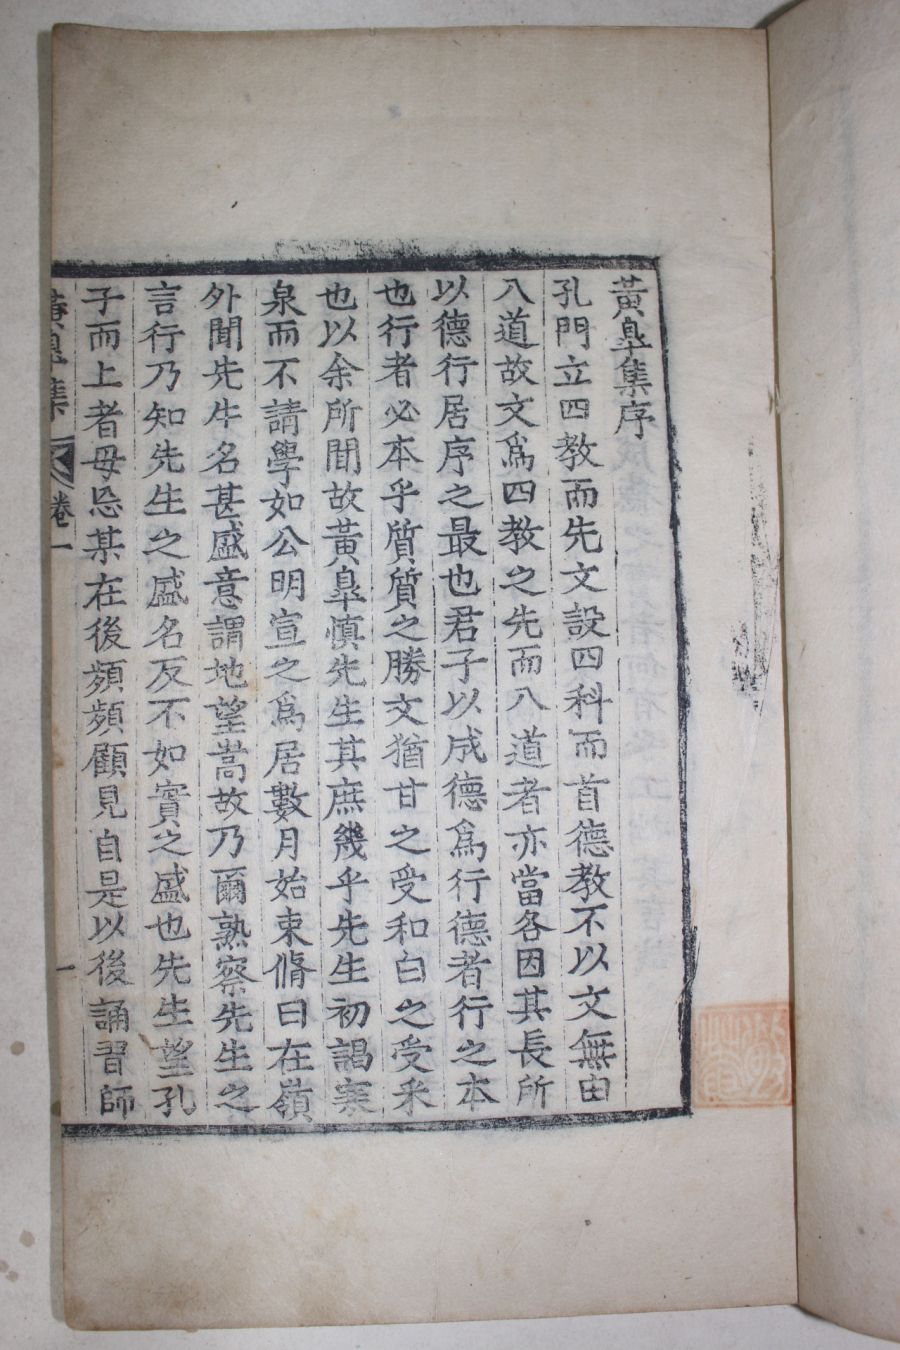 黃皐集序
孔門立四教而先文設四科而首德教不以文無由
入道故文爲四教之先而入道者亦當各因其長所
以德行居序之最也君子以成德爲行德者行之本
也行者必本乎質質之勝文猶甘之受和白之受采
也以余所聞故黃皐愼先生其庶幾乎先生初謁寒
泉而不請學如公明宣之爲居數月始束脩曰在嶺
外聞先生名甚盛意謂地望嵩故乃爾熟察先生之
言行乃知先生之盛名反不如實之盛也先生望孔
子而上者毋忘某在後頻頻顧見自是以後誦習師
黃皐集 卷一 一